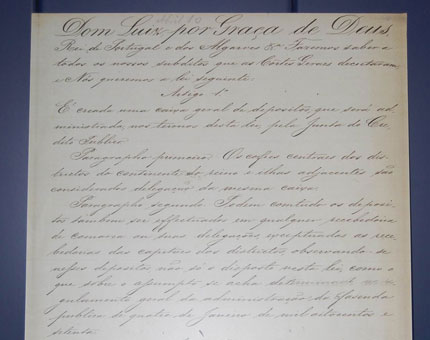 Dom Luiz por Graça de Deus,
Rei de Portugal e dos Algarves &a. Fazemos saber a
todos os nossos subditos que as Cortes Geraes decretaram
e Nós queremos a lei seguinte:
Artigo 1º
É creada uma caixa geral de depositos, que será ad-
ministrada, nos termos desta lei, pela Junta do Cre-
dito Publico.
Paragrapho primeiro. Os cofres centraes dos dis-
trictos do continente do reino e ilhas adjacentes são
considerados delegação da mesma caixa.
Paragrapho segundo. Podem comtudo os deposi-
tos tambem ser effectuados em qualquer recebedoria
de comarca ou suas delegações, exceptuadas as rece-
bedorias das capitaes dos districtos, observando-se
nesses depositos não só o disposto nesta lei, como o
que sobre o assumpto se acha determinado no re-
gulamento geral da administração da fasenda
publica de quatro de Janeiro de mil oitocentos e
setenta.